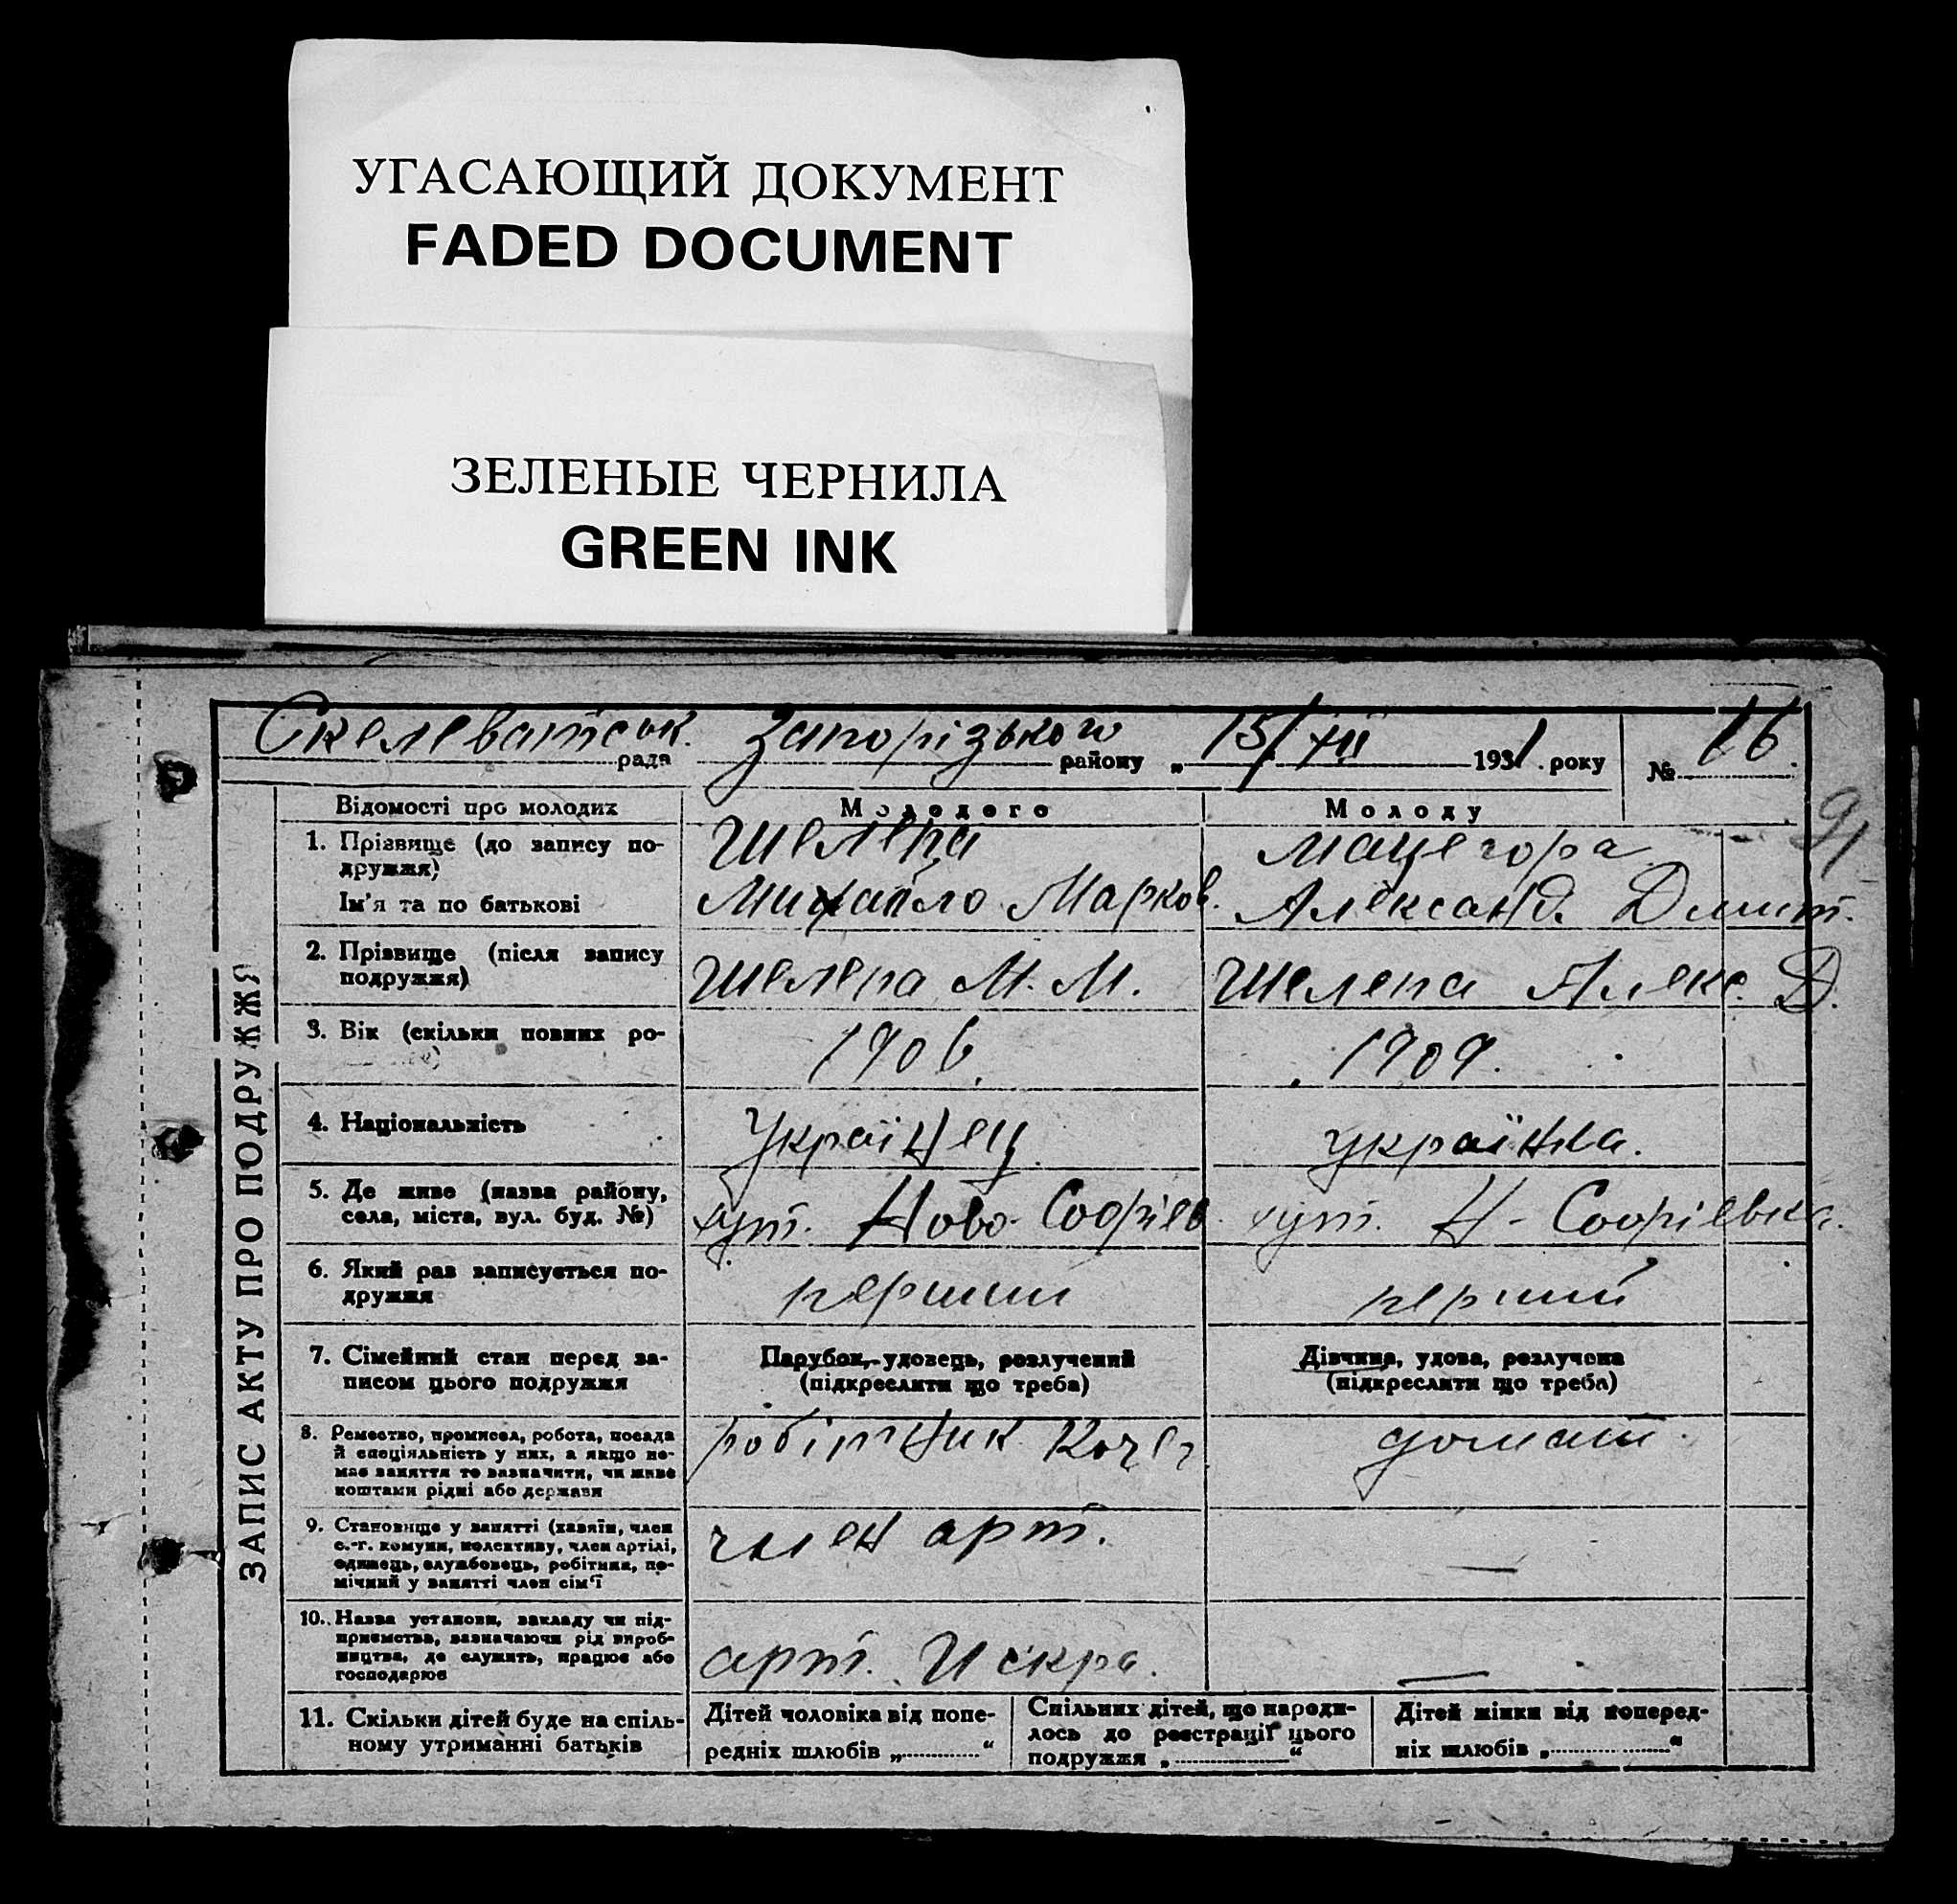 УГАСАЮЩИЙ ДОКУМЕНТ
FADED DOCUMENT
ЗЕЛЕНЫЕ ЧЕРНИЛА
GREEN INK
Скелеватськ. рада Запорізького району „15/XII 1931 року № 16.
91
ЗАПИС АКТУ ПРО ПОДРУЖЖЯ
Відомості про молодих Молодого Молоду
1. Прізвище (до запису по-
дружжя) Шелепа Мацегора
Ім'я та по батькові Михайло Марков. Александ. Дмит.
2. Прізвище (після запису
подружжя) Шелепа М. М. Шелепа Алекс. Д.
3. Вік (скільки повних ро-
1906. 1909.
4. Національність Українец українка.
5. Де живе (назва району,
села, міста, вул. буд. №) хут. Ново-Софіев. хут. Н-Софіевка.
6. Який раз записується по-
дружжя перший перший
7. Сімейний стан перед за-
писом цього подружжя
Парубок, удовець, розлучений
(підкреслити що треба)
Дівчина, удова, розлучена
(підкреслити що треба)
8. Ремество, промисел, робота, посада
й спеціяльність у них, а якщо не-
має заняття то зазначити, чи живе
коштами рідні або держави
робітник домаш.
9. Становище у занятті (хазяїн, член
с.-г. комуни, колективу, член артілі,
одинець, службовець, робітник, по-
мічний у занятті член сім'ї
член арт. —
10. Назва установи, закладу чи під-
приємства, зазначаючи рід вироб-
ництва, де служить, працює або
господарює
арт. Искра. —
11. Скільки дітей буде на спіль-
ному утриманні батьків
Дітей чоловіка від попе-
редніх шлюбів „.............“
Спільних дітей, що народи-
лось до реєстрації цього
подружжя „.............“
Дітей жінки від поперед-
ніх шлюбів „.............“